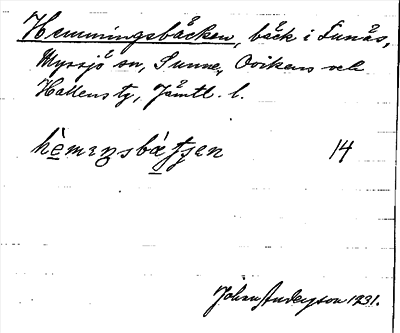 Hemmingsbäcken, bäck i Funäs,
Myssjö sn, Sunne, Ovikens och
Hallens tg, Jämtl. l.
hèmeŋsbàʈʂen 14
Johan Anderson 1931.